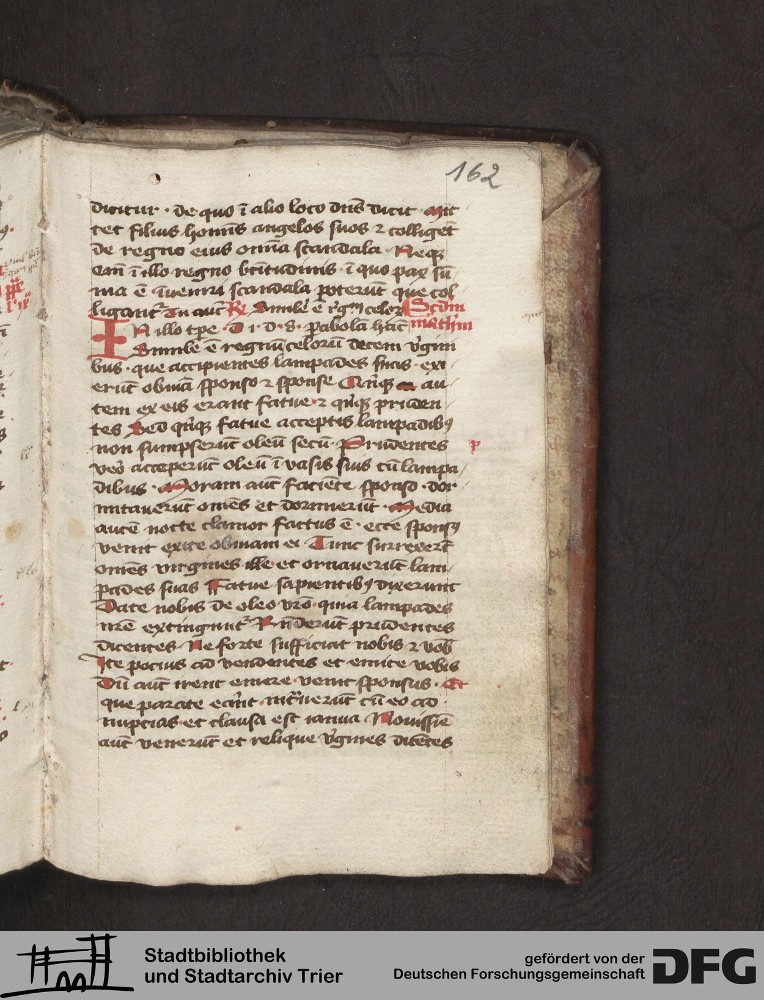 162
dicitur · de quo ī alio loco dns̄ dicit · Mit
tet filius homīs angelos suos ⁊ colliget
de regno eius omīa scandala · Neqꝫ
em̄ ī illo regno btitudinis · ī quo pax sū
ma ē īveniri scandala poterūt que col
ligantᷣ In aut̄ ℟ Simile ē rgm̄ celoꝝ Scd̄m
IN illo tp̄e · D · i · d · s · pabolā hāc math'm
Simile ē regnū celorū decem v'gini
bus · que accipientes lampades suas · exi
erūt obviā sponso ⁊ sponse Quīqꝫ au
tem ex eis erant fatue · ⁊ qīqꝫ pruden
tes Sed qīqꝫ fatue acceptis lampadibꝰ
non sumpserūt oleū secū · Prudentes
vero acceperūt oleū ī vasis suis cū lampa
dibus · Moram aut̄ faciēte sponso · dor
mitaverūt om̄es et dormierūt · Media
autē nocte clamor factus ē · ecce sponsꝰ
venit exite obviam ei · Tunc surrexerūt
om̄es virgines ille · et ornaverūt lam
pades suas Fatue sapientibꝰ dixerunt
Date nobis de oleo vrō · quia lampades
nrē extinguntᷣ Rn̄derūt prudentes
dicentes · Ne forte sufficiat nobis ⁊ vob̄
Ite pocius ad vendentes et emite vobis
Dū aut̄ irent emere venit sponsus · Et
que parate erāt īt̄verūt cū eo ad
nupcias · et clausa est ianua Novissīe
aut̄ venerūt et relique v'gines dicētes
Stadtbibliothek
und Stadtarchiv Trier
gefördert von der
Deutschen Forschungsgemeinschaft
DFG